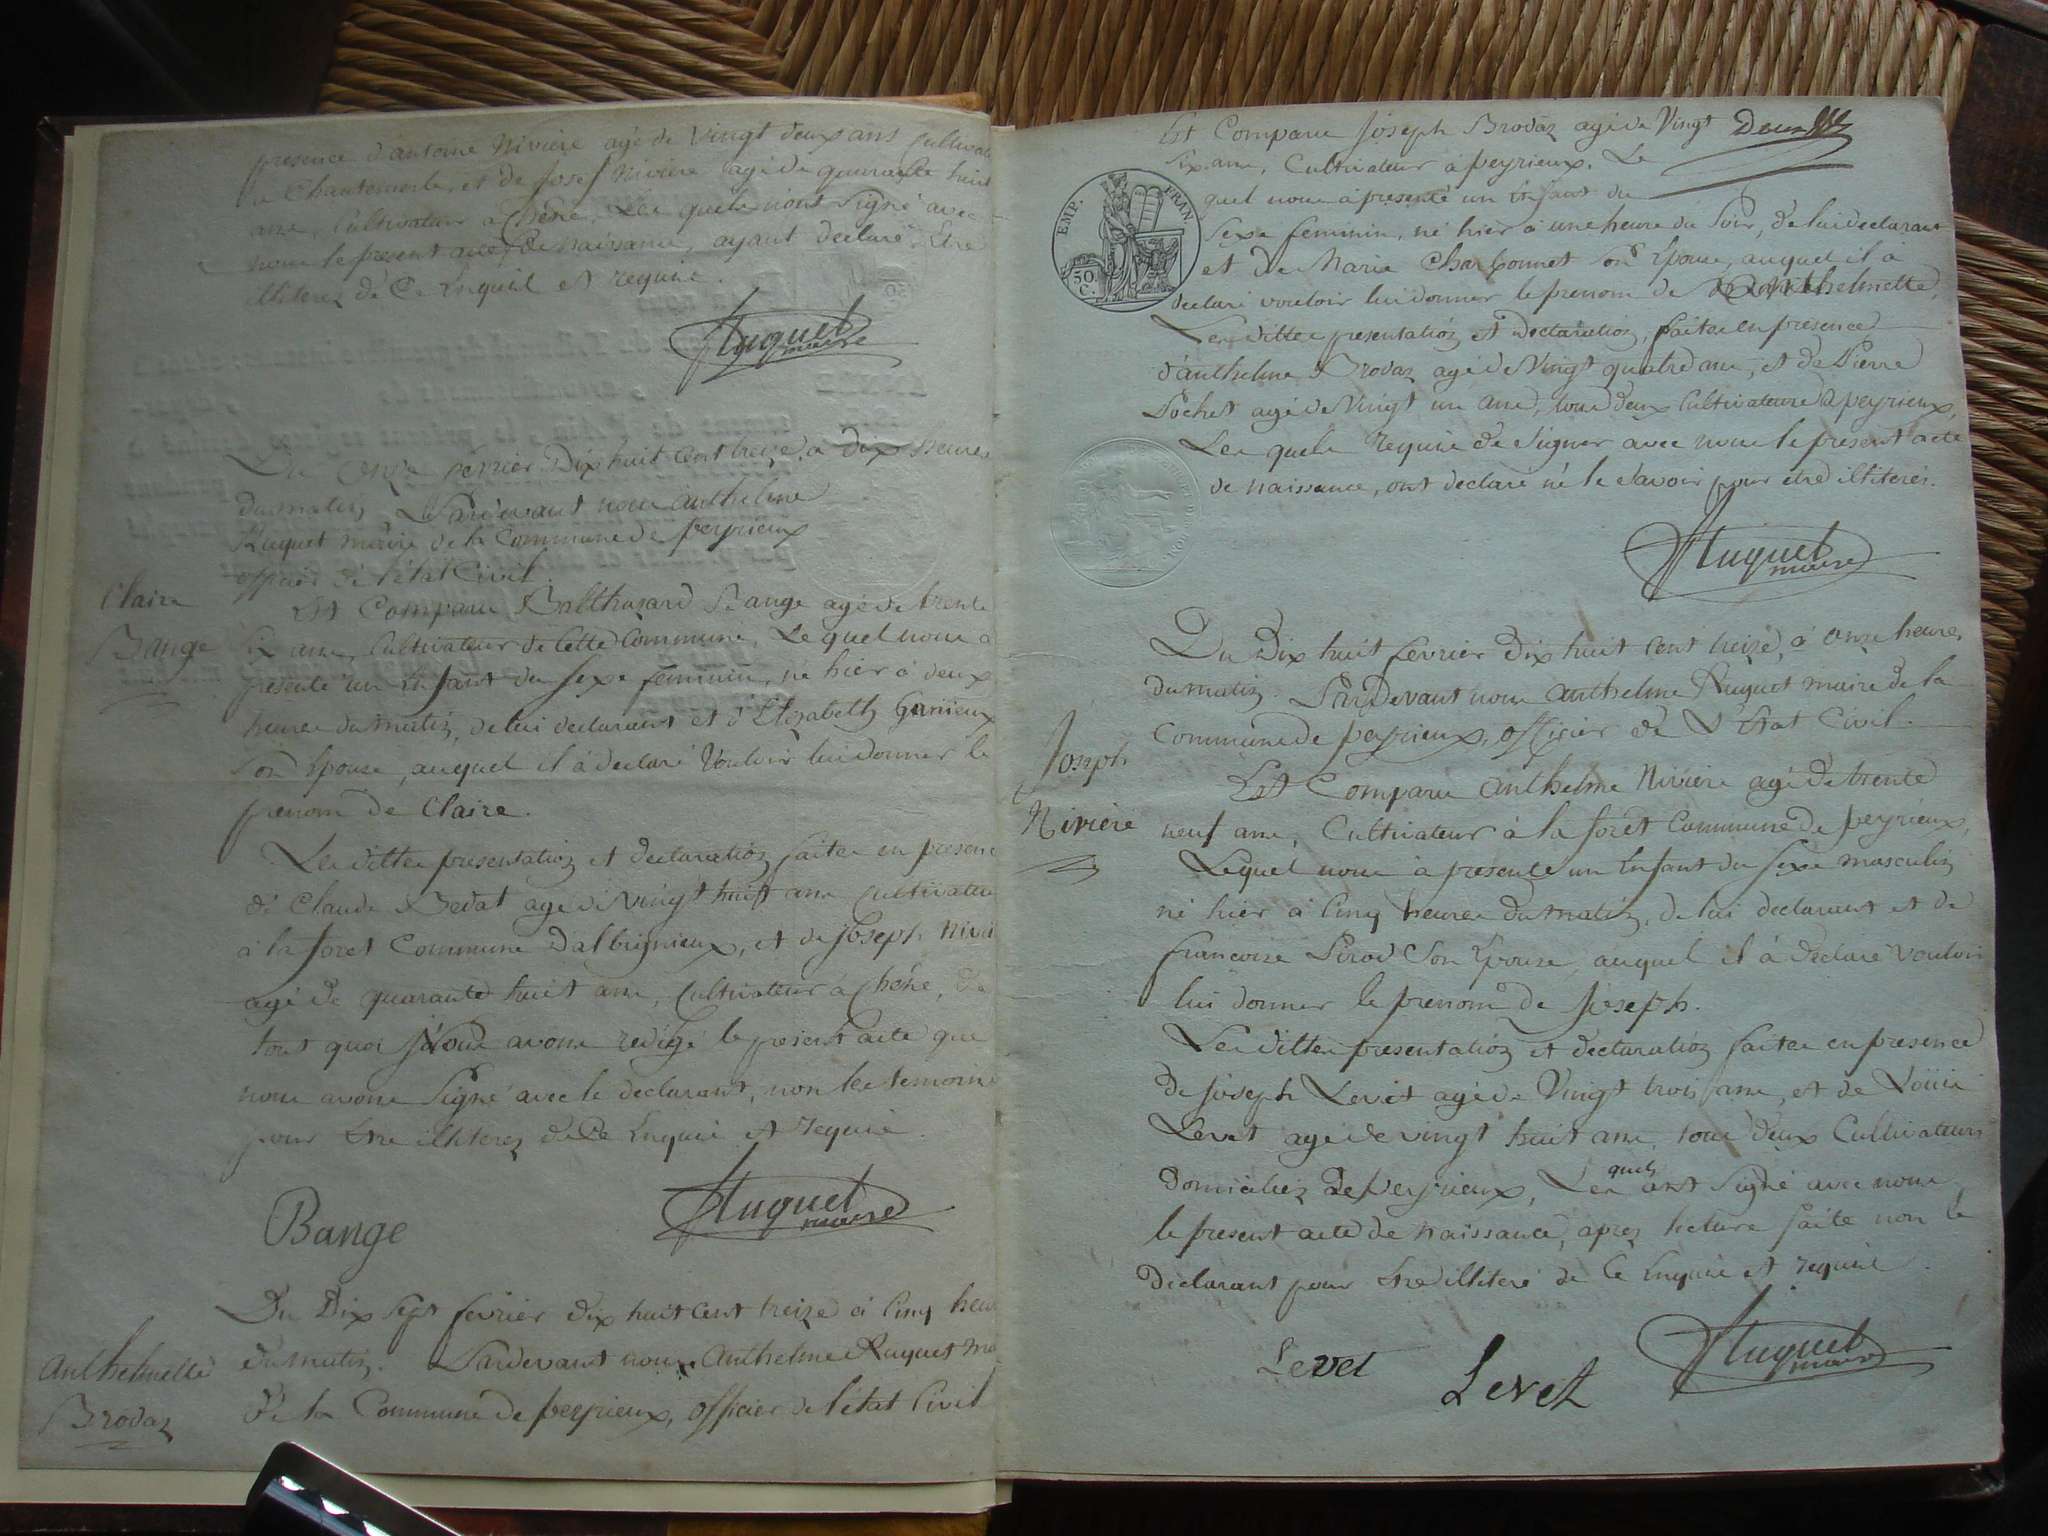 presence d'antoine Nivière agé de Vingt deux ans Cultivate
a Chantemerle, et de Josef Nivière agé de quarante huit
ans, Cultivateur a Chêne, Les quels n'ont Signé avec
nous le present acte de Naissance, ayant declaré Etre
illiterez de Ce Enquis et requis.
Huguet
maire
Du onze fevrier Dix huit Cent treize, a dix heures
du matin Pardevant nous anthelme
Huguet maire de la Commune de peyrieux
officier de l'état Civil.
Claire
Bange
Est Comparu Balthazard Bange agé de trente
Six ans, Cultivateur de Cette Commune, Le quel nous a
presenté un Enfant du Sexe feminin, né hier à deux
heures du matin, de lui declarant et d'Elizabeth Ganieux
Son Epouse, auquel il à declaré Vouloir lui donner le
prenom de Claire.
Les dittes presentation et declaration faites en presence
de Claude Bedat agé de Vingt huit ans Cultivateur
à la foret Commune D'albignieux, et de Joseph Nivi
agé de quarante huit ans, Cultivateur à Chêne, De
tout quoi Nous avons redigé le present acte que
nous avons Signé avec le declarant, non les temoins
pour Etre illiterez de Ce Enquis et requis.
Bange
Huguet
maire
Du Dix Sept fevrier dix huit Cent treize à Cinq heu
du matin. Pardevant nous Anthelme Huguet ma
de la Commune de peyrieux, officier de l'état Civil
anthelmette
Brodaz
Est Comparu Joseph Brodaz agé de Vingt Deux
Six ans, Cultivateur à peyrieux. Le
quel nous à presenté un Enfant du
Sexe feminin, né hier à une heure du Soir, de lui declarant
et de Marie Charbonnet Son Epouse, auquel il à
declaré vouloir lui donner le prenom de anthelmette,
Les dittes presentation et Declaration, faites en presence
d'anthelme Brodaz agé de Vingt quatre ans, et de Pierre
Pochet agé de Vingt un ans, tous deux Cultivateurs a peyrieux,
Les quels requis de Signer avec nous le present acte
de naissance, ont declaré ne le Savoir pour être illiterés.
EMP. FRAN
50.
C.
Huguet
maire
Du Dix huit fevrier Dix huit Cent treize, à onze heures
du matin. Pardevant nous anthelme Huguet maire de la
Commune de peyrieux, officier de L'Etat Civil.
Joseph
Nivière
Est Comparu anthelme Nivière agé de trente
neuf ans, Cultivateur à la foret Commune de peyrieux,
Lequel nous à presenté un Enfant du Sexe masculin
né hier à Cinq heures du matin, de lui declarant et de
francoise Pirod Son Epouse, auquel il à declaré vouloir
lui donner le prenom de Joseph.
Les dittes presentation et declaration faites en presence
de Joseph Levet agé de Vingt trois ans, et de Loüis
Levet agé de vingt huit ans, tous deux Cultivateurs
domiciliez de peyrieux, Les quels ont Signé avec nous
le present acte de naissance, apres lecture faite non le
declarant pour Etre illiteré de Ce Enquis et requis.
Levet Levet
Huguet
maire